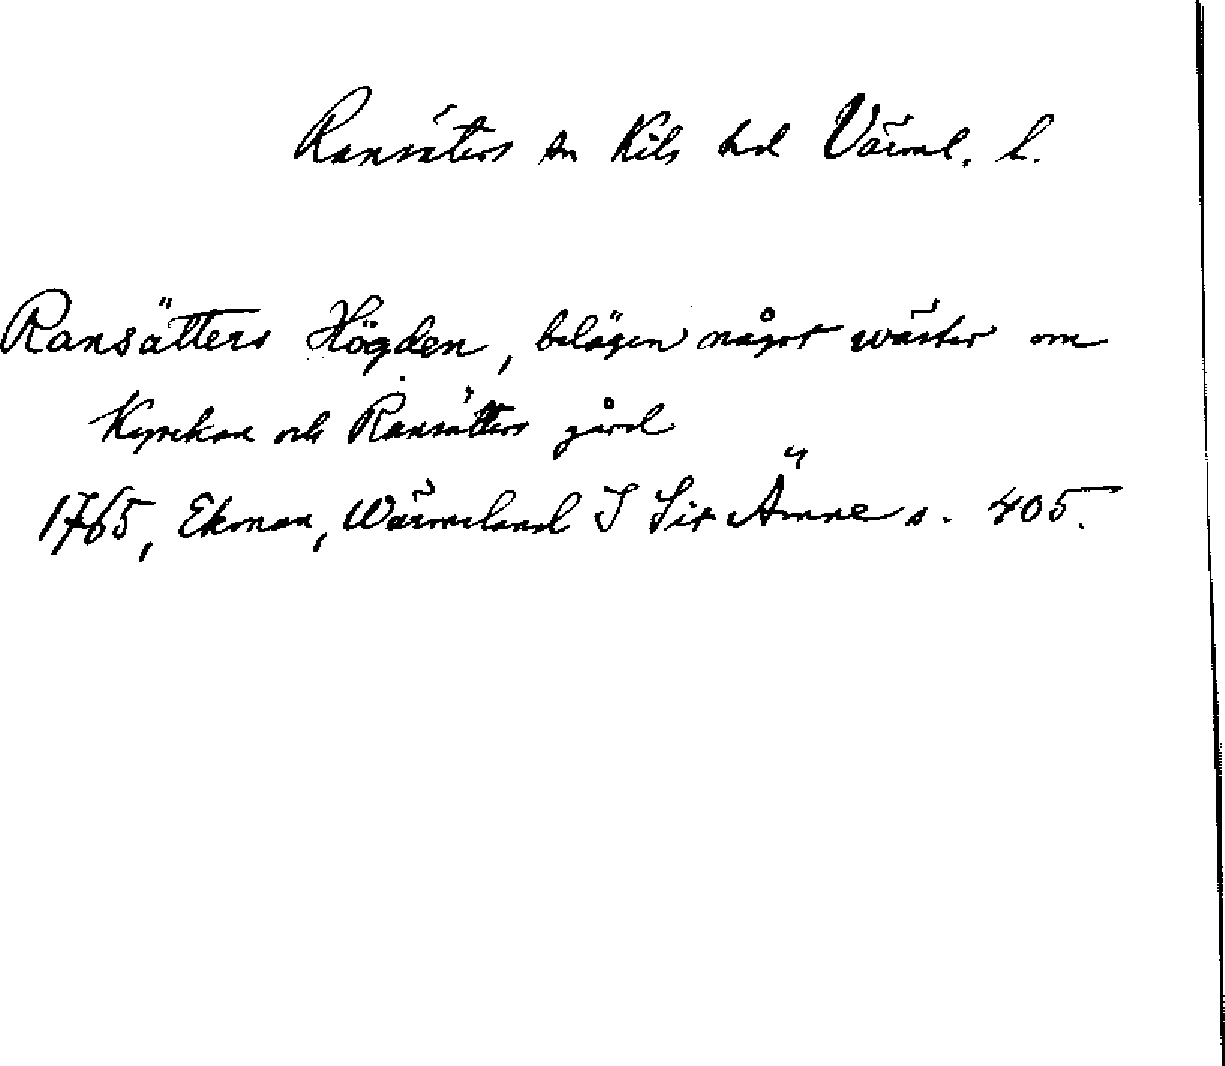 Ransäters sn Kils hd Värml. l.
Ransätters Högden, belägen något wäster om
Kyrckan och Ransätters gård
1765, Ekman, Wärmeland I Sit Ämne s. 405.